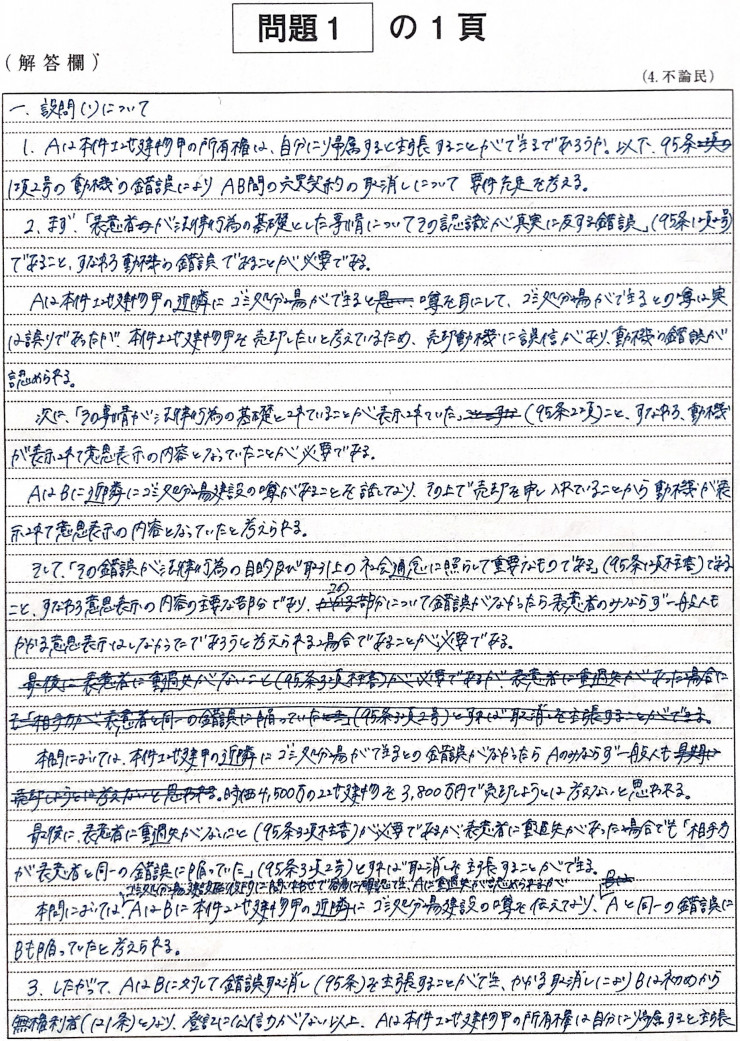 問題1 の1頁
(解答欄)
(4.不論民)
一. 設問(1)について
1. Aは本件土地建物甲の所有権は、自分に帰属すると主張することができるであろうか。以下、95条
1項2号の動機の錯誤によりAB間の売買契約の取消しについて要件充足を考える。
2. まず、「表意者が法律行為の基礎とした事情についてその認識が真実に反する錯誤」(95条1項2号)
であること、すなわち動機の錯誤であることが必要である。
Aは本件土地建物甲の近隣にゴミ処分場ができると噂を耳にして、ゴミ処分場ができるとの噂は実
は誤りであったが、本件土地建物甲を売却したいと考えているため、売却動機に誤信があり、動機の錯誤が
認められる。
次に、「その事情が法律行為の基礎とされていることが表示されていた」(95条2項)こと、すなわち、動機
が表示されて意思表示の内容となっていたことが必要である。
AはBに近隣にゴミ処分場建設の噂があることを話しており、その上で売却を申し入れていることから動機が表
示されて意思表示の内容となっていたと考えられる。
そして、「その錯誤が法律行為の目的及び取引上の社会通念に照らして重要なものである」(95条1項柱書)である
こと、すなわち意思表示の内容の主要な部分であり、この部分について錯誤がなかったら表意者のみならず一般人も
かかる意思表示はしなかったであろうと考えられる場合であることが必要である。
最後に表意者に重過失がないこと(95条3項柱書)が必要であるが、表意者に重過失があった場合に
も「相手方が表意者と同一の錯誤に陥っていたとき」(95条3項2号)とすれば取消しを主張することができる。
本問においては、本件土地建甲の近隣にゴミ処分場ができるとの錯誤がなかったらAのみならず一般人も
売却しようとは考えないと思われる。時価4,500万の土地建物を3,800万円で売却しようとは考えないと思われる。
最後に、表意者に重過失がないこと(95条3項柱書)が必要であるが、表意者に重過失があった場合でも「相手方
が表意者と同一の錯誤に陥っていた」(95条3項2号)とすれば取消しを主張することができる。
ゴミ処分場建設は役所に問い合わせで容易に確認でき、Aに重過失が認められるが
本問においては、AはBに本件土地建物甲の近隣にゴミ処分場建設の噂を伝えており、Aと同一の錯誤に
Bも陥っていたと考えられる。
3. したがって、AはBに対して錯誤取消し(95条)を主張することができ、かかる取消しによりBは初めから
無権利者(121条)となり、登記に公信力がない以上、Aは本件土地建物甲の所有権は自分に帰属すると主張